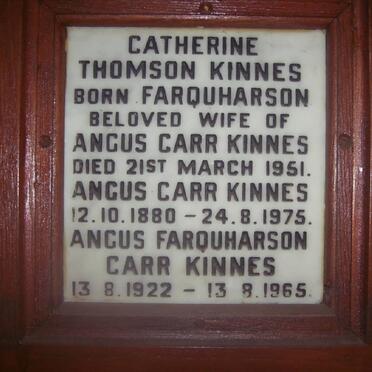 CATHERINE
THOMSON KINNES
BORN FARQUHARSON
BELOVED WIFE OF
ANGUS CARR KINNES
DIED 21ST MARCH 1951.
ANGUS CARR KINNES
12.10.1880 – 24.8.1975.
ANGUS FARQUHARSON
CARR KINNES
13 8.1922 – 13 8.1965.